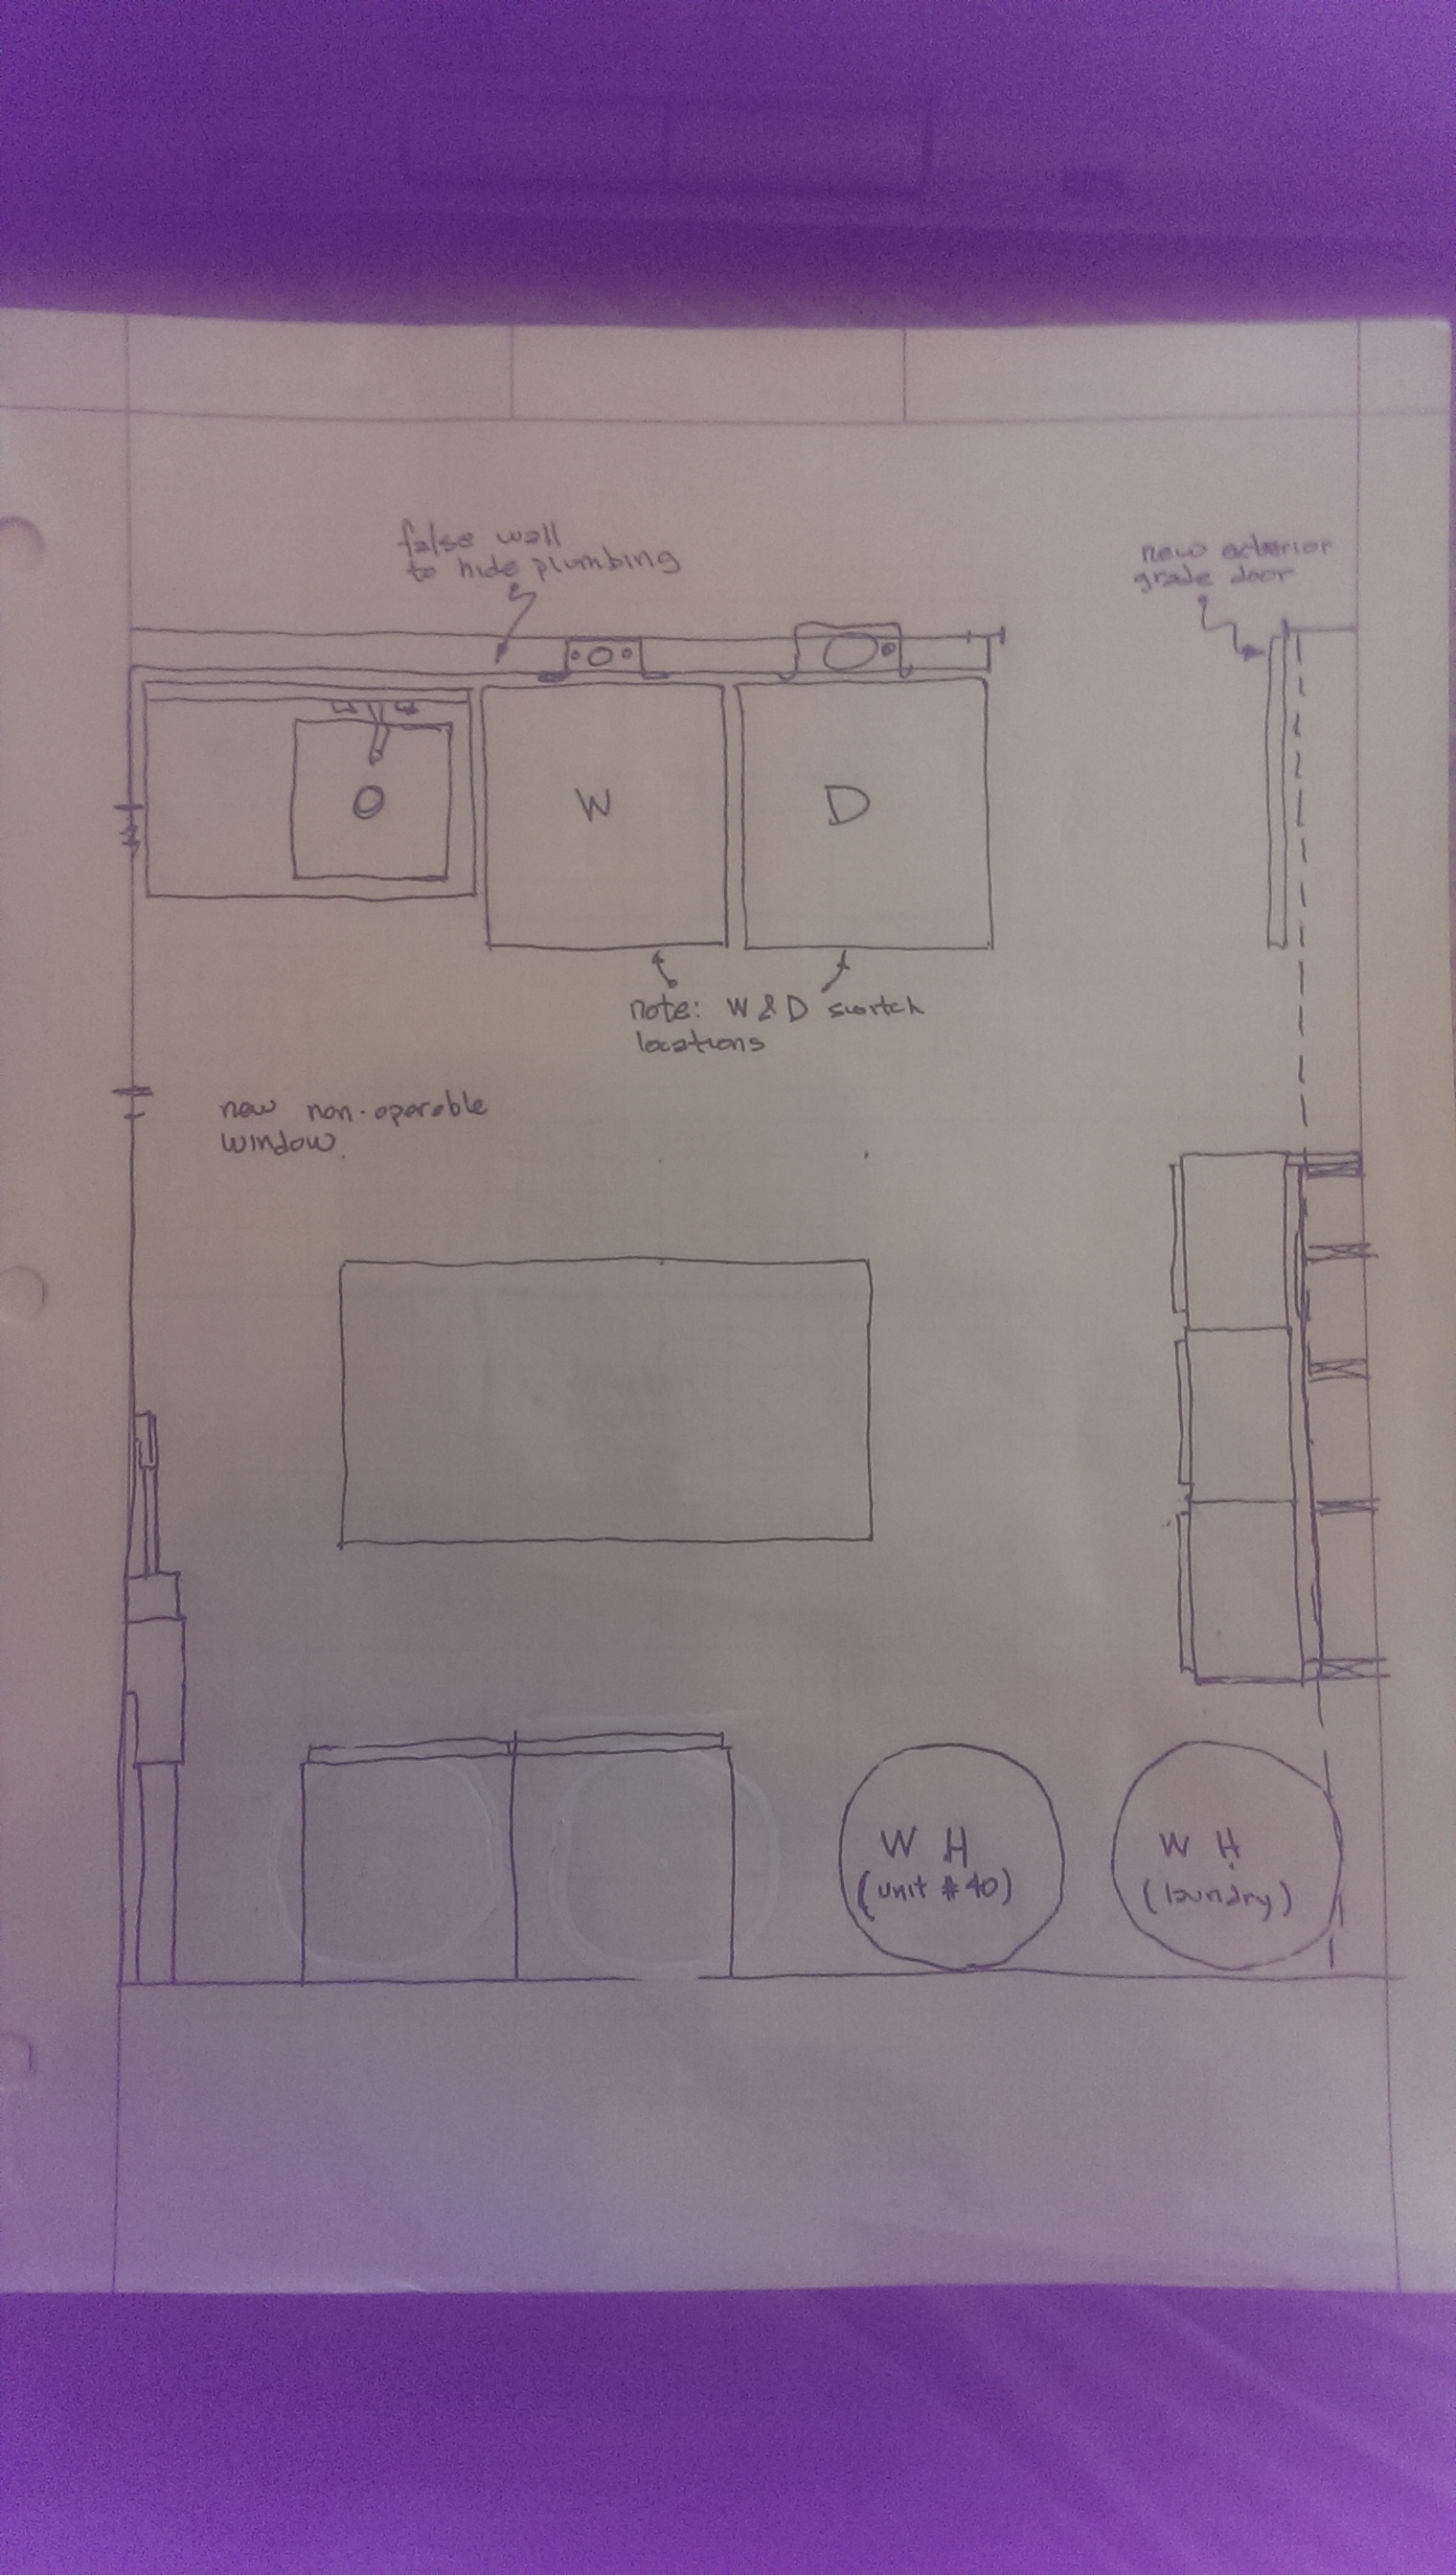 false wall
to hide plumbing
new exterior
grade door
W
D
note: W & D switch
locations
new non-operable
window.
W H
(unit #40)
W H
(laundry)